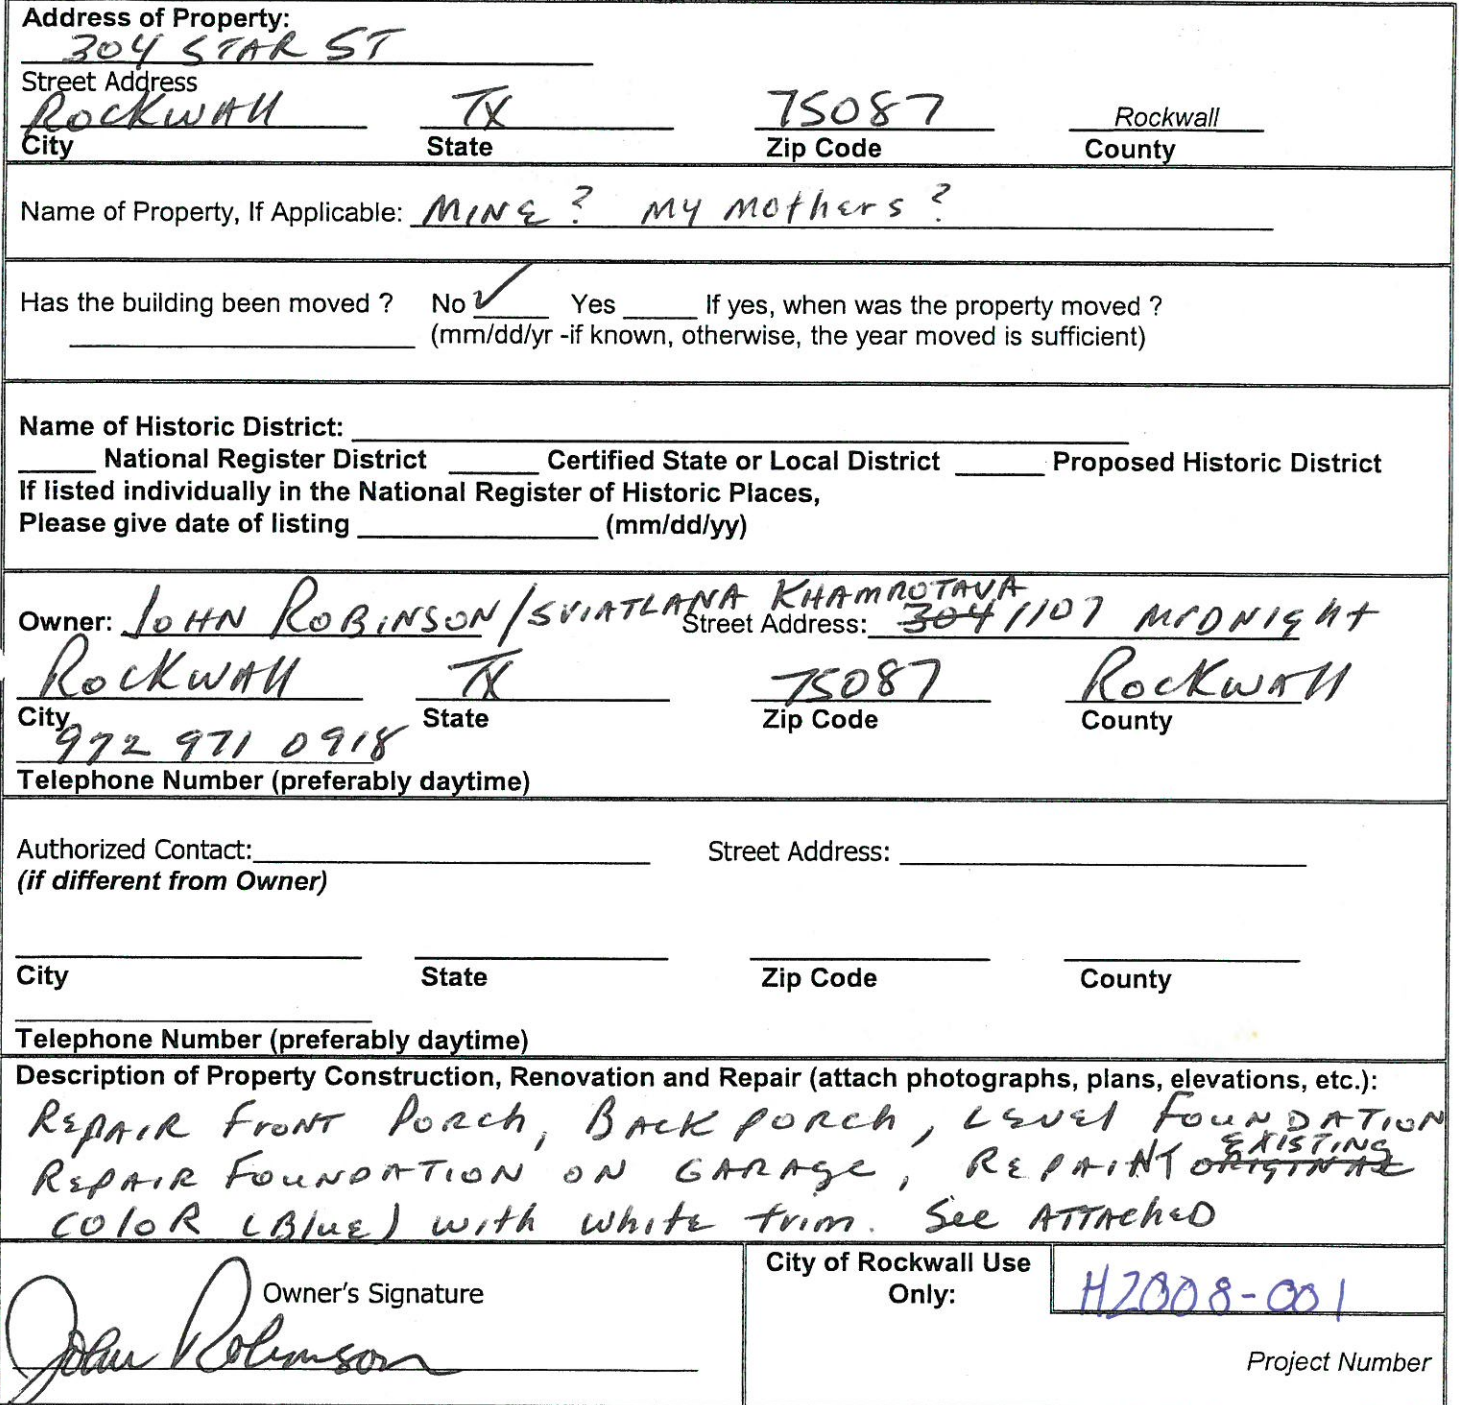 Address of Property:
304 STAR ST
Street Address
ROCKWAll TX 75087 Rockwall
City State Zip Code County
Name of Property, If Applicable: MINE? MY MOthers?
Has the building been moved ? No ✓ Yes _____ If yes, when was the property moved ?
(mm/dd/yr -if known, otherwise, the year moved is sufficient)
Name of Historic District:
_____ National Register District ______ Certified State or Local District ______ Proposed Historic District
If listed individually in the National Register of Historic Places,
Please give date of listing ________________ (mm/dd/yy)
Owner: JOHN ROBINSON/SVIATLANA KHAMROTAVA Street Address: 304 1107 MIDNIGHt
ROCKWAll TX 75087 ROCKWAll
City State Zip Code County
972 971 0918
Telephone Number (preferably daytime)
Authorized Contact: Street Address:
(if different from Owner)
City State Zip Code County
Telephone Number (preferably daytime)
Description of Property Construction, Renovation and Repair (attach photographs, plans, elevations, etc.):
REPAIR FRONT PORch, BACK PORch, LEVEl FOUNDATION
REPAIR FOUNDATION ON GARAGE, REPAINT ORIGINAL EXISTING
COlOR (BluE) with whitE trim. SEE ATTAChED
Owner's Signature
John Robinson
City of Rockwall Use
Only:
H2008-001
Project Number